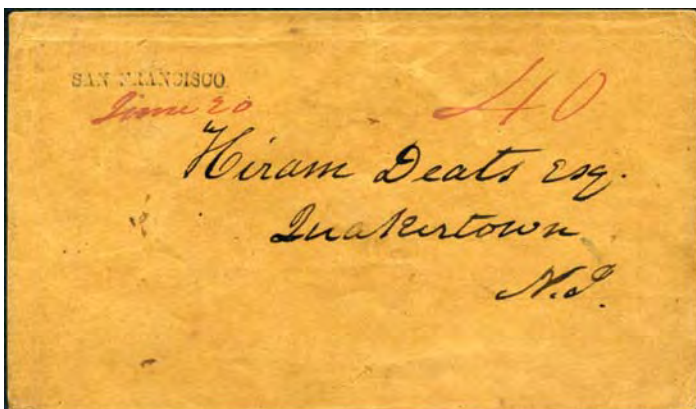 SAN FRANCISCO.
June 20
40
Hiram Deats Esq.
Quakertown
N.J.